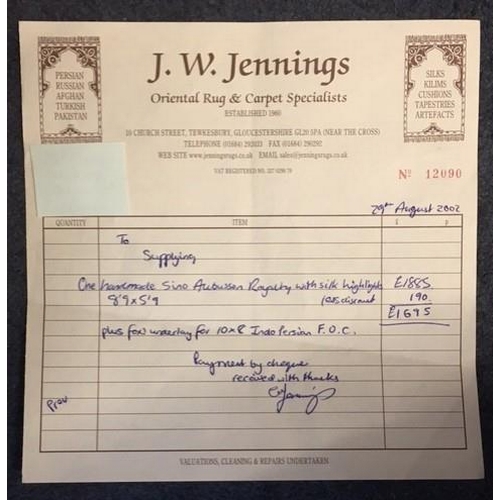 J. W. Jennings
Oriental Rug & Carpet Specialists
ESTABLISHED 1960
PERSIAN
RUSSIAN
AFGHAN
TURKISH
PAKISTAN
SILKS
KILIMS
CUSHIONS
TAPESTRIES
ARTEFACTS
10 CHURCH STREET, TEWKESBURY, GLOUCESTERSHIRE GL20 5PA (NEAR THE CROSS)
TELEPHONE (01684) FAX (01684)
WEB SITE www.jenningsrugs.co.uk EMAIL sales@jenningsrugs.co.uk
VAT REGISTERED NO.
Nº 12090
29th August 2002
QUANTITY ITEM £ P
To
Supplying
One handmade Sino Aubusson Royalty with silk highlights £1885
8'9 x 5'9 10% discount 190
£1695
plus underlay for 10x8 Indo Persian F.O.C.
Payment by cheque
received with thanks
Jennings
VALUATIONS, CLEANING & REPAIRS UNDERTAKEN